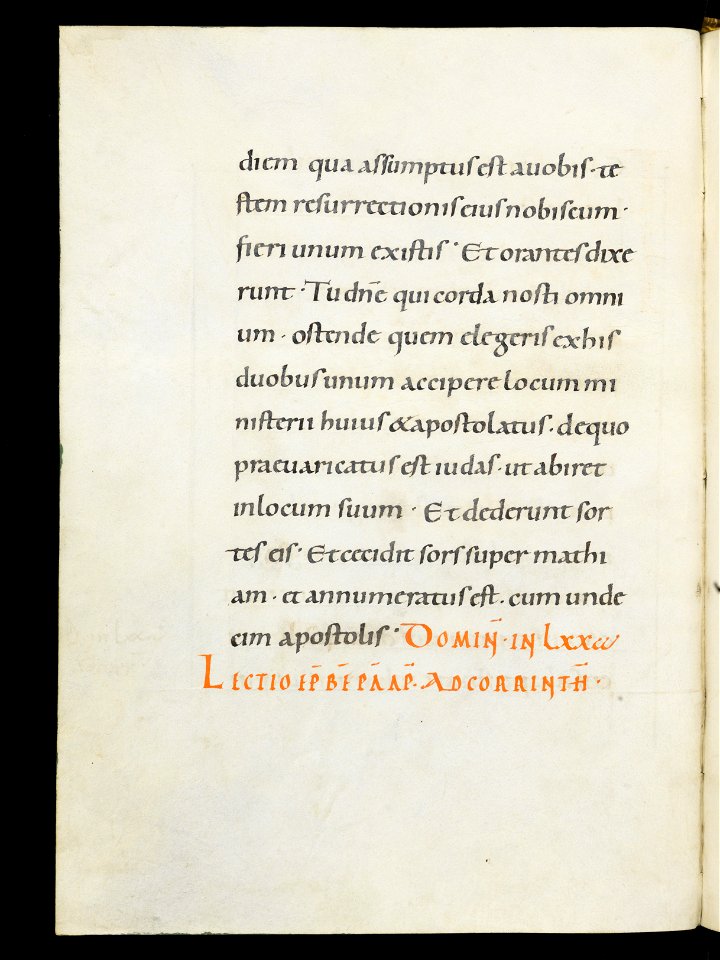 diem qua assumptus est a uobis · te
stem resurrectionis eius nobiscum ·
fieri unum ex istis · Et orantes dixe
runt · Tu dn̄e qui corda nosti omni
um · ostende quem elegeris ex his
duobus unum accipere locum mi
nisterii huius & apostolatus · de quo
praeuaricatus est iudas · ut abiret
in locum suum · Et dederunt sor
tes eis · Et cecidit sors super mathi
am · et annumeratus est · cum unde
cim apostolis · DOMIN̄ · IN LXX
LECTIO EP̄ B̄E PĀ AP̄ · AD CORRINTH̄ ·